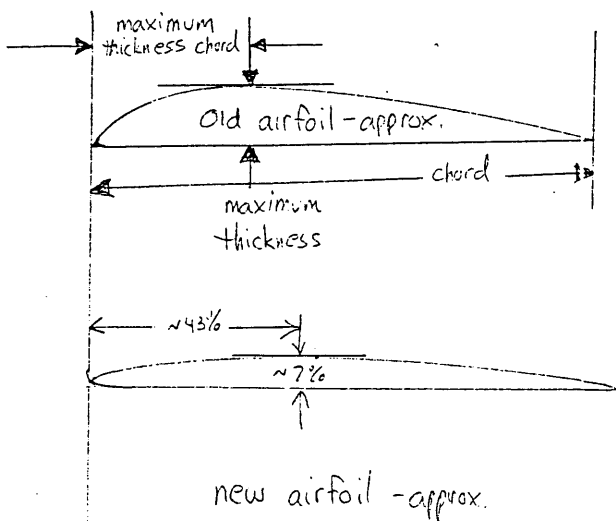 maximum
thickness chord
Old airfoil-approx.
chord
maximum
thickness
~43%
~7%
new airfoil -approx.